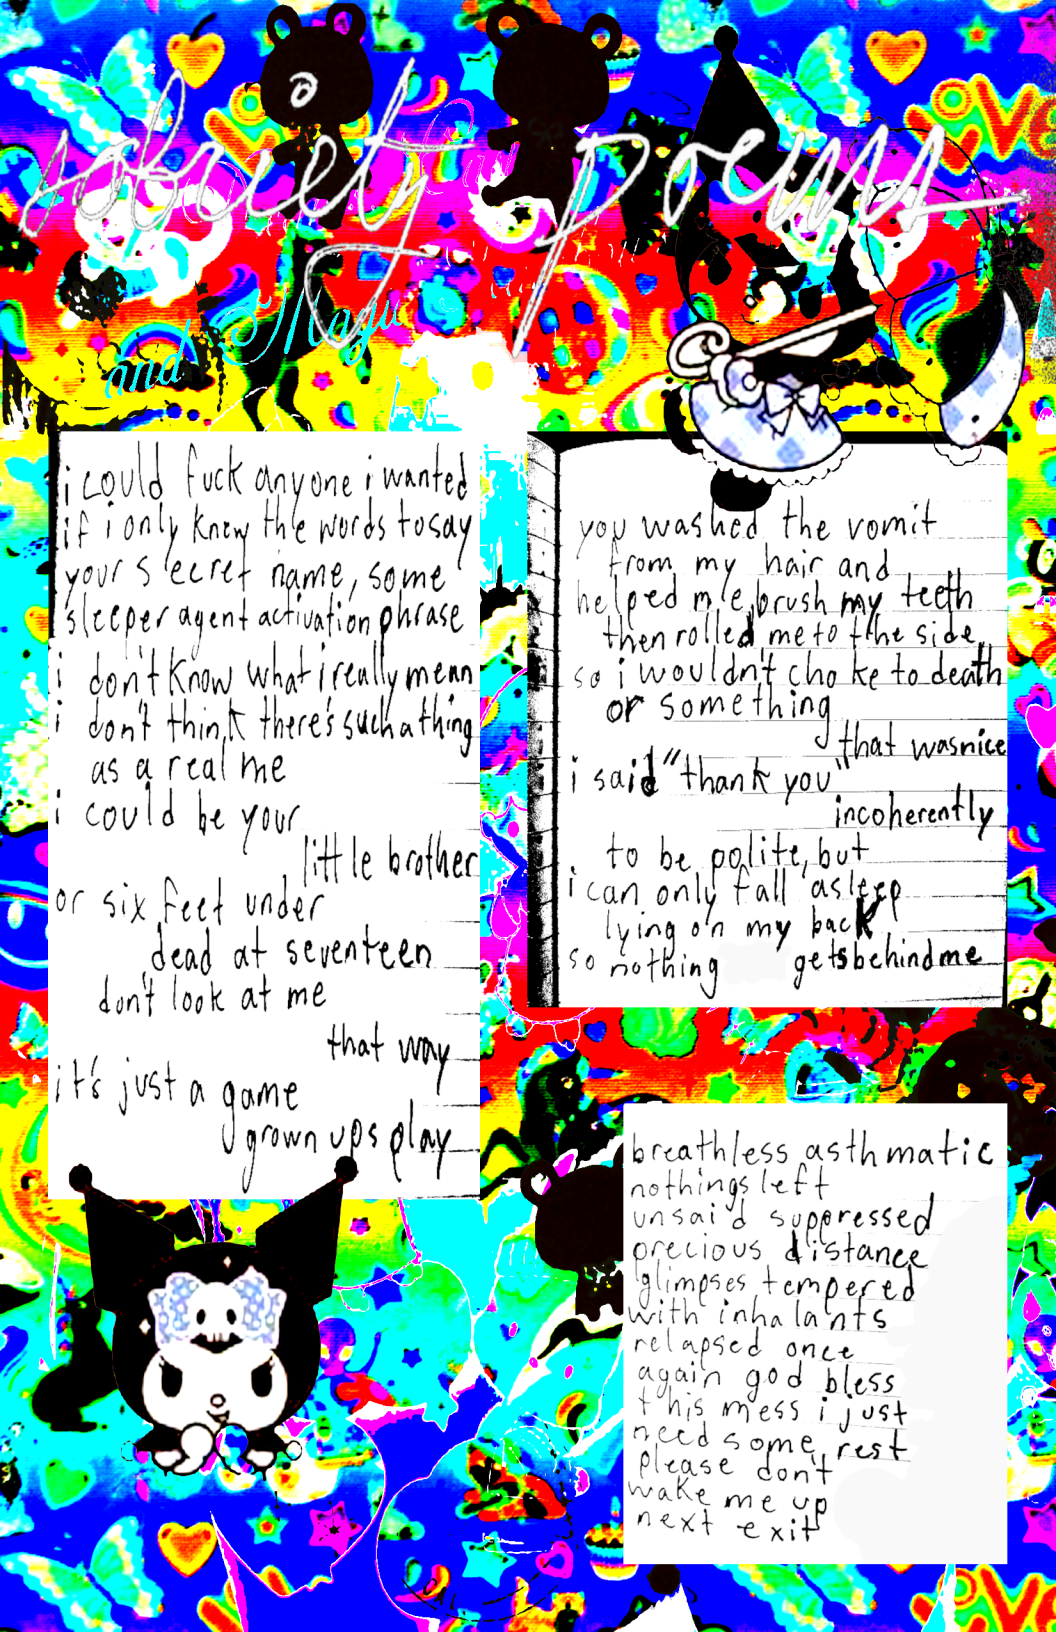 sobriety poems
LOVE
LOVE
and Magic
i could fuck anyone i wanted
if i only knew the words to say
your secret name, some
sleeper agent activation phrase
i don't know what i really mean
i don't think there's such a thing
as a real me
i could be your
little brother
or six feet under
dead at seventeen
don't look at me
that way
it's just a game
grown ups play
you washed the vomit
from my hair and
helped me brush my teeth
then rolled me to the side
so i wouldn't choke to death
or something
that was nice
i said "thank you"
incoherently
to be polite, but
i can only fall asleep
lying on my back
so nothing gets behind me
breathless asthmatic
nothings left
unsaid suppressed
precious distance
glimpses tempered
with inhalants
relapsed once
again god bless
this mess i just
need some rest
please don't
wake me up
next exit
LOVE